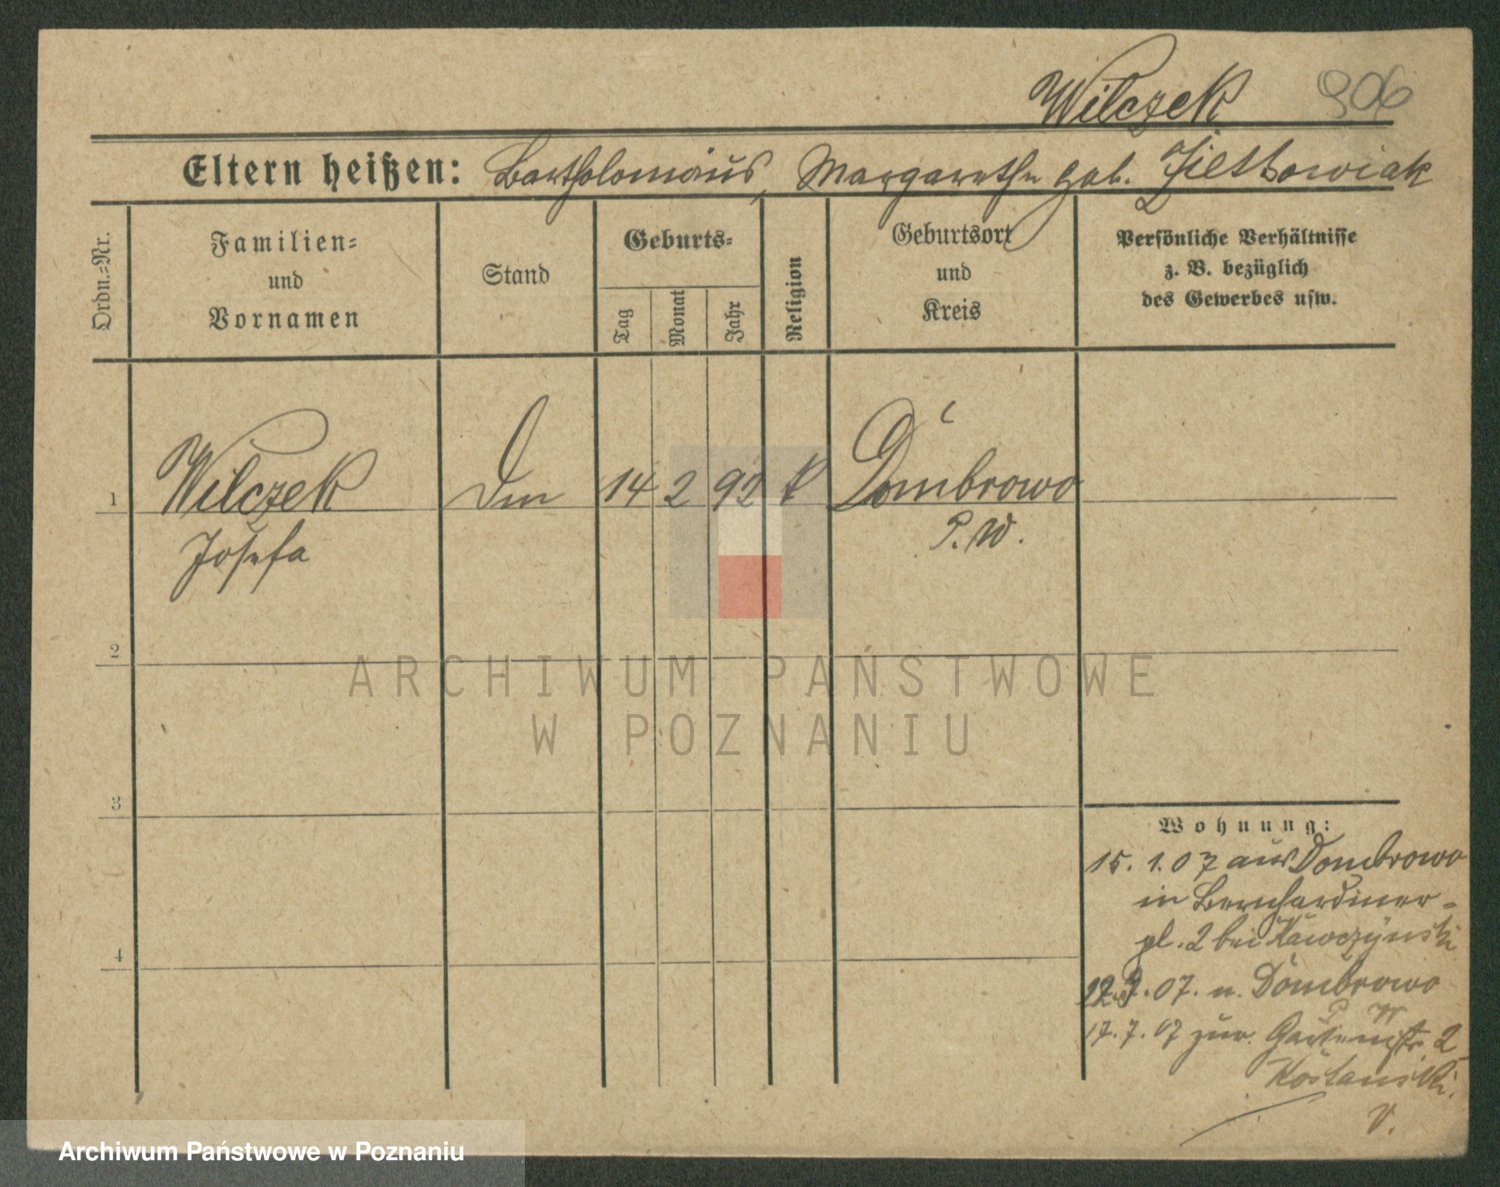 Wilczek 906
Eltern heißen: Bartholomäus, Margarethe geb.
Ordn.=Nr.
Familien=
und
Vornamen
Stand
Geburts=
Tag
Monat
Jahr
Religion
Geburtsort
und
Kreis
Persönliche Verhältnisse
z. B. bezüglich
des Gewerbes usw.
1 Wilczek Dm 14 2 92 k Dombrowo
Josefa P. W.
2
3
4
Wohnung:
15. 1. 07 aus Dombrowo
in Bernhardiner=
pl. 2 bei Kawczynski
07. n. Dombrowo
P W
17. 7. 07 zur. Gartenstr 2
V.
ARCHIWUM PAŃSTWOWE
W POZNANIU
Archiwum Państwowe w Poznaniu